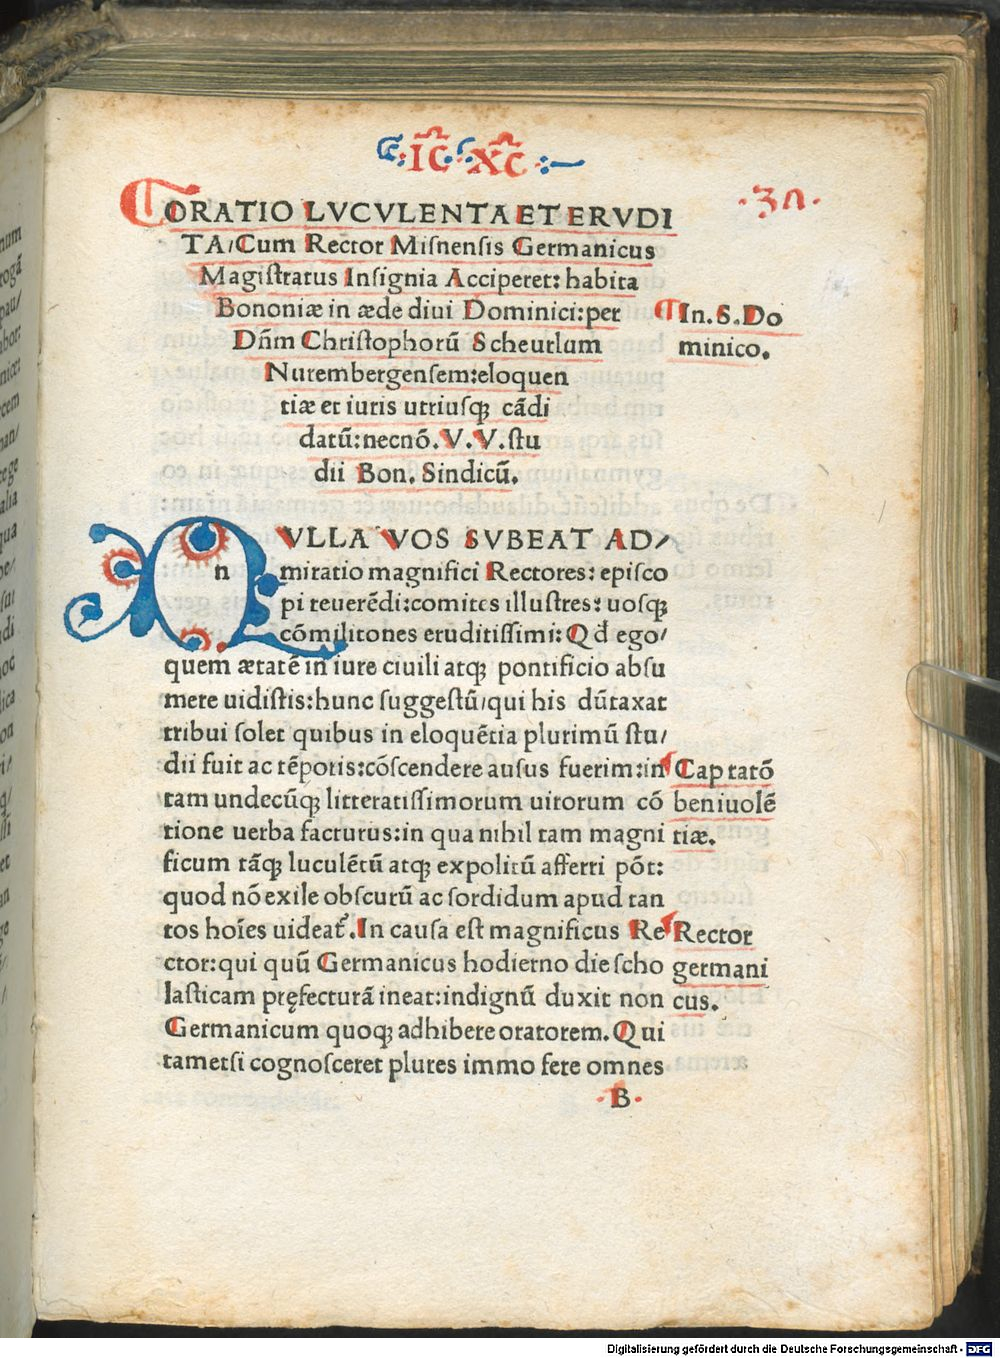 IC XC
ORATIO LVCVLENTA ET ERVDI
TA/Cum Rector Miſnenſis Germanicus
Magiſtratus Inſignia Acciperet: habita
Bononiæ in æde diui Dominici: per
Dn̄m Chriſtophorū Scheurlum
Nurembergenſem: eloquen
tiæ et iuris utriuſq; cādi
datū: necnō. V. V. ſtu
dii Bon. Sindicū.
In. S. Do
minico.
VLLA VOS SVBEAT AD/
n
miratio magnifici Rectores: epiſco
pi reuerēdi: comites illuſtres: uoſq;
cōmilitones eruditiſſimi: Qd̄ ego/
quem ætatē in iure ciuili atq; pontificio abſu
mere uidiſtis: hunc ſuggeſtū/qui his dūtaxat
tribui ſolet quibus in eloquētia plurimū ſtu/
dii fuit ac tēporis: cōſcendere auſus fuerim: in
tam undecūq; litteratiſſimorum uirorum cō
tione uerba facturus: in qua nihil tam magni
ficum tāq; luculētū atq; expolitū afferri pōt:
quod nō exile obſcurū ac ſordidum apud tan
tos hoīes uideat᷑. In cauſa eſt magnificus Re
ctor: qui quū Germanicus hodierno die ſcho
laſticam pręfecturā ineat: indignū duxit non
Germanicum quoq; adhibere oratorem. Qui
tametſi cognoſceret plures immo fere omnes
Captatō
beniuolē
tiæ.
Rector
germani
cus.
B
Digitalisierung gefördert durch die Deutsche Forschungsgemeinschaft - DFG